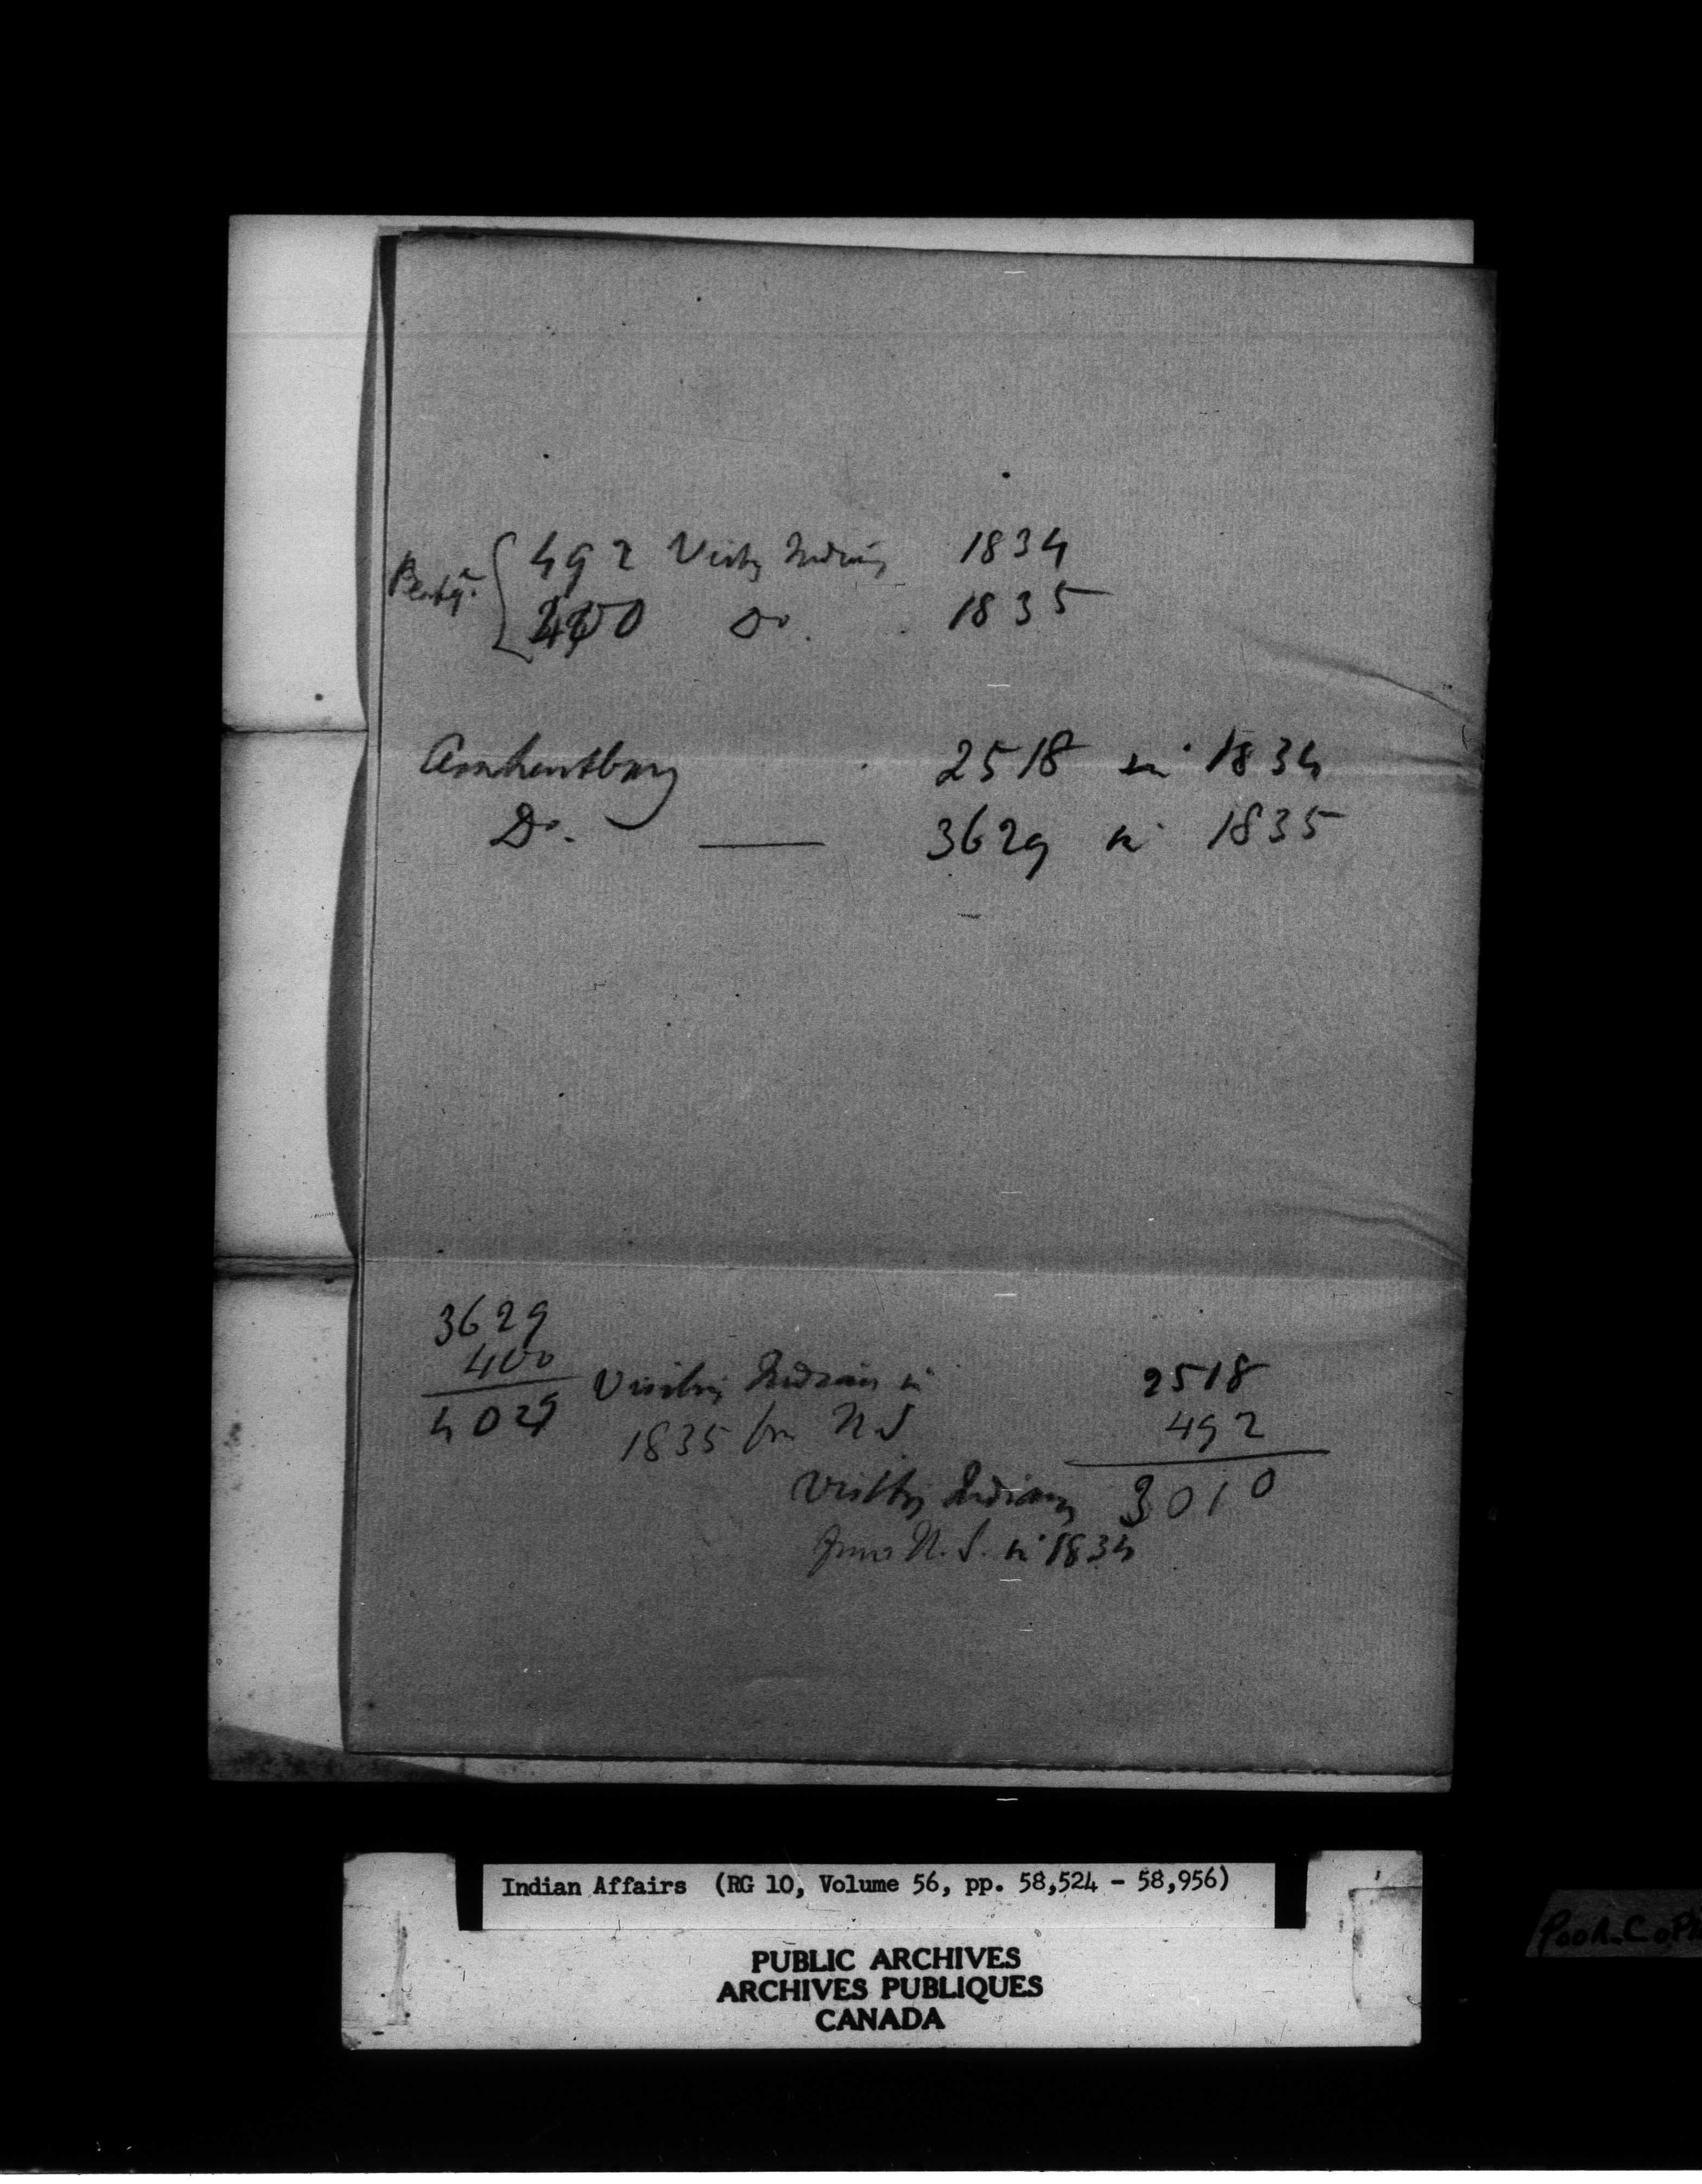 492 Visitg Indians 1834
400 Do. 1835
Amherstburg 2518 in 1834
Do. — 3629 in 1835
3629
400
4029
Visiting Indians in
1835 from U S
2518
492
3010
Visiting Indians
from U. S. in 1834
Indian Affairs (RG 10, Volume 56, pp. 58,524 - 58,956)
PUBLIC ARCHIVES
ARCHIVES PUBLIQUES
CANADA